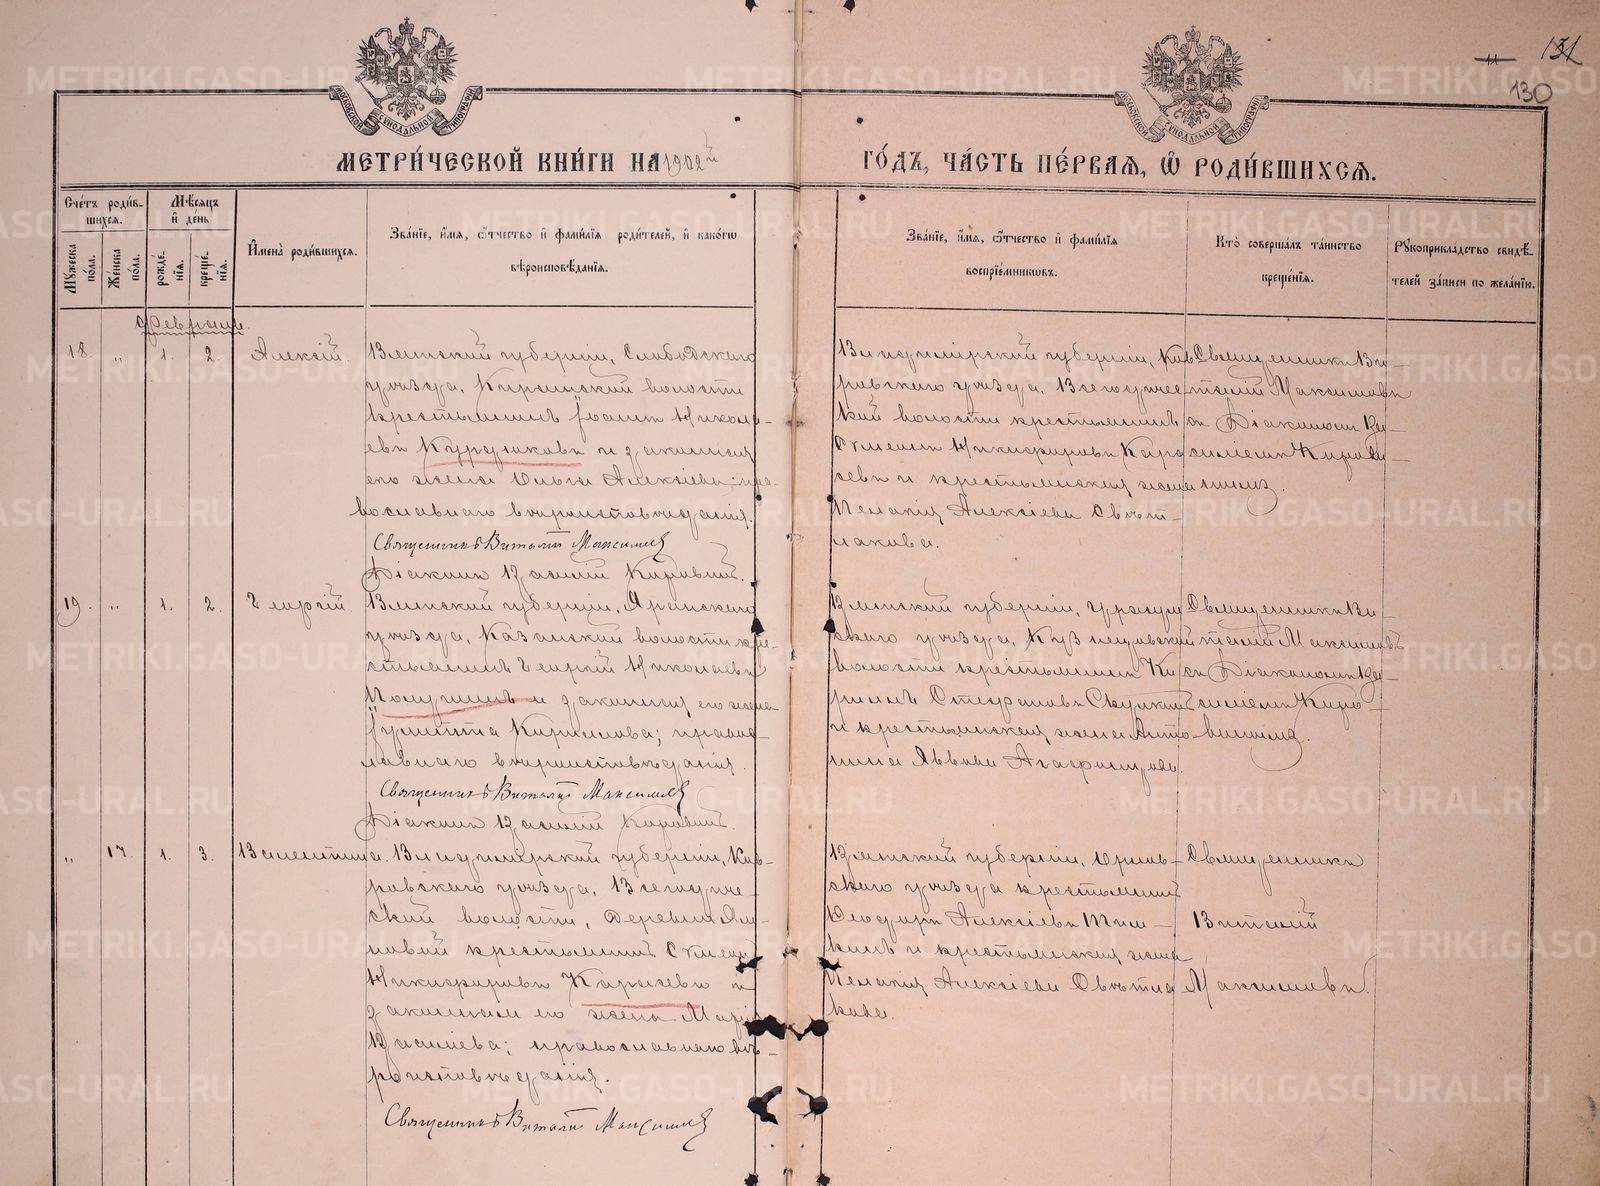 131
130
МЕТРИ́ЧЕСКОЙ КНИ́ГИ НА 1902й
ГО́ДЪ, ЧА́СТЬ ПЕ́РВАЯ, Ѿ РОДИ́ВШИХСЯ.
Сче́тъ роди́вшихся.
Мѣ́сяцъ и҆ день
Мꙋ́жеска по́ла.
Же́нска по́ла.
рожде́нїѧ.
креще́нїѧ.
И҆мена̀ роди́вшихся.
Зва́нїе, и҆́мя, ѻ҆́тчество и҆ фами́лїя роди́телей, и҆ како́гѡ
вѣроисповѣ́данїя.
Зва́нїе, и҆́мя, ѻ҆́тчество и҆ фами́лїя
воспрїе́мникѡвъ.
Кто̀ соверша́лъ та́инство
креще́нїя.
Рꙋкоприкла́дство свидѣ́-
телей за́писи по жела́нїю.
Февраль
18. " 1. 2. Алексій.
Вятской губерніи, Слободского
уѣзда,
волости
крестьянинъ Іоаннъ Никола-
евъ и законная
его жена Ольга Алексіева; пра-
вославнаго вѣроисповѣданія.
Священникъ Виталій Максимовъ
Діаконъ Василій
Владимірской губерніи, Ков-
ровскаго уѣзда, Всегодиче-
ской волости крестьянинъ
Сѵмеонъ Никифоровъ Кара-
севъ и крестьянская жена
Пелагія Алексіева Свѣтла-
кова.
Священникъ Ви-
талій Максимовъ
съ Діакономъ Ва-
силіемъ
19. " 1. 2. Георгій.
Вятской губерніи, Яранскаго
уѣзда, Казанской волости кре-
стьянинъ Георгій Николаевъ
и законная его жена
Іулитта Кириллова; право-
славнаго вѣроисповѣданія.
Священникъ Виталій Максимовъ
Діаконъ Василій
Вятской губерніи, Уржум-
скаго уѣзда, Кузнецовской
волости крестьянинъ Ки-
риллъ Стефановъ
и крестьянская жена Анто-
нина Агафонова.
Священникъ Ви-
талій Максимовъ
съ Діакономъ Ва-
силіемъ
" 17. 1. 3. Валентина.
Владимірской губерніи, Ков-
ровскаго уѣзда, Всегодиче-
ской волости, деревни
крестьянинъ Сѵмеонъ
Никифоровъ Карасевъ и
законная его жена Марія
Васильева; православнаго вѣ-
роисповѣданія.
Священникъ Виталій Максимовъ
Вятской губерніи, Орлов-
скаго уѣзда крестьянинъ
Ѳеодоръ Алексіевъ
и крестьянская жена
Пелагія Алексіева Свѣтла-
кова.
Священникъ
Виталій
Максимовъ.
METRIKI.GASO-URAL.RU